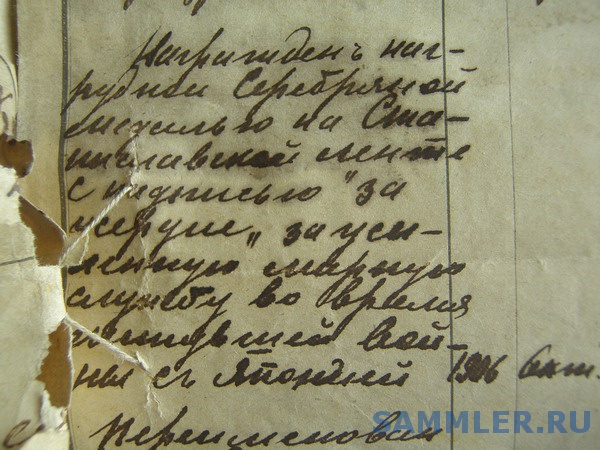 Награжденъ наг-
рудной Серебряной
медалью на Ста-
ниславской ленте
с надписью "за
усердие„ за уси-
ленную мирную
службу во время
минувшей вой-
ны съ Японией 1906 Окт.
Переименован
SAMMLER.RU